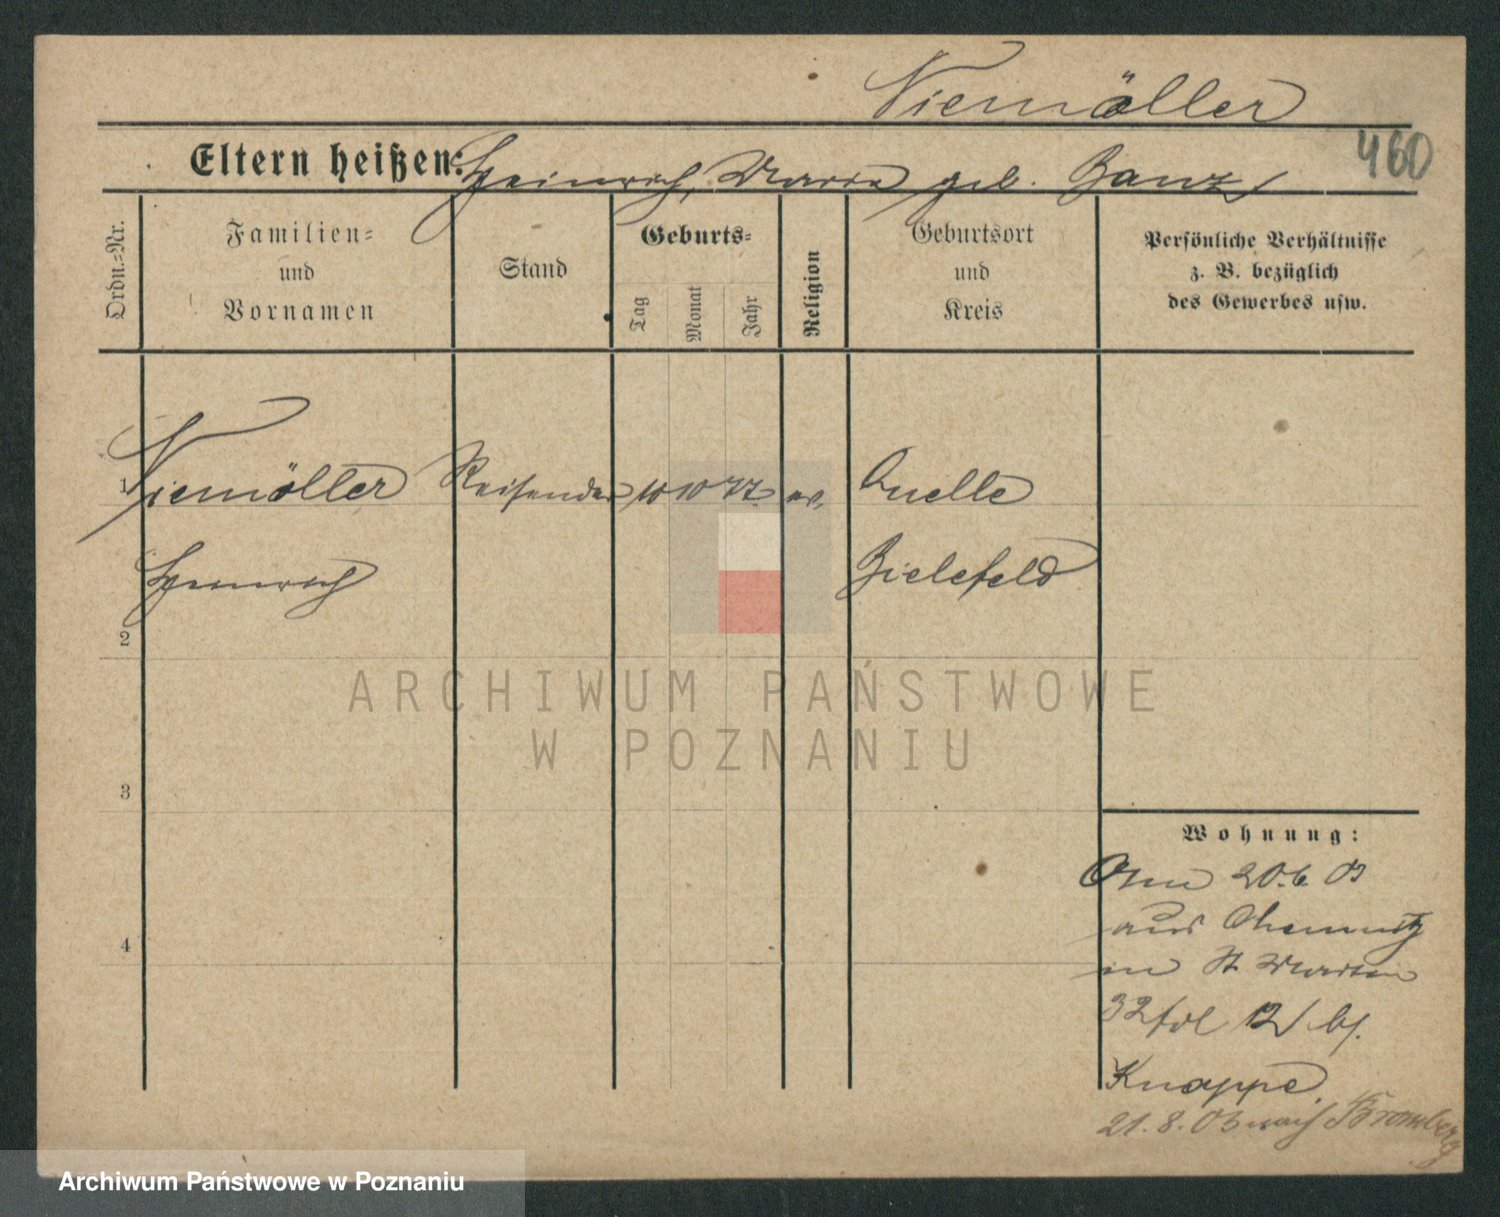 Niemöller
460
Eltern heißen: Heinrich, Maria geb. Banz
Ordn.-Nr.
Familien-
und
Vornamen
Stand
Geburts-
Tag
Monat
Jahr
Religion
Geburtsort
und
Kreis
Persönliche Verhältnisse
z. B. bezüglich
des Gewerbes usw.
1 Niemöller Reisender 10 10 77 ev. Quelle
Heinrich Bielefeld
2
ARCHIWUM PAŃSTWOWE
W POZNANIU
3
4
Wohnung:
20.6.03
aus Chemnitz
in St Martin
32 12 bf.
Knappe.
21.8.03 nach Bromberg
Archiwum Państwowe w Poznaniu